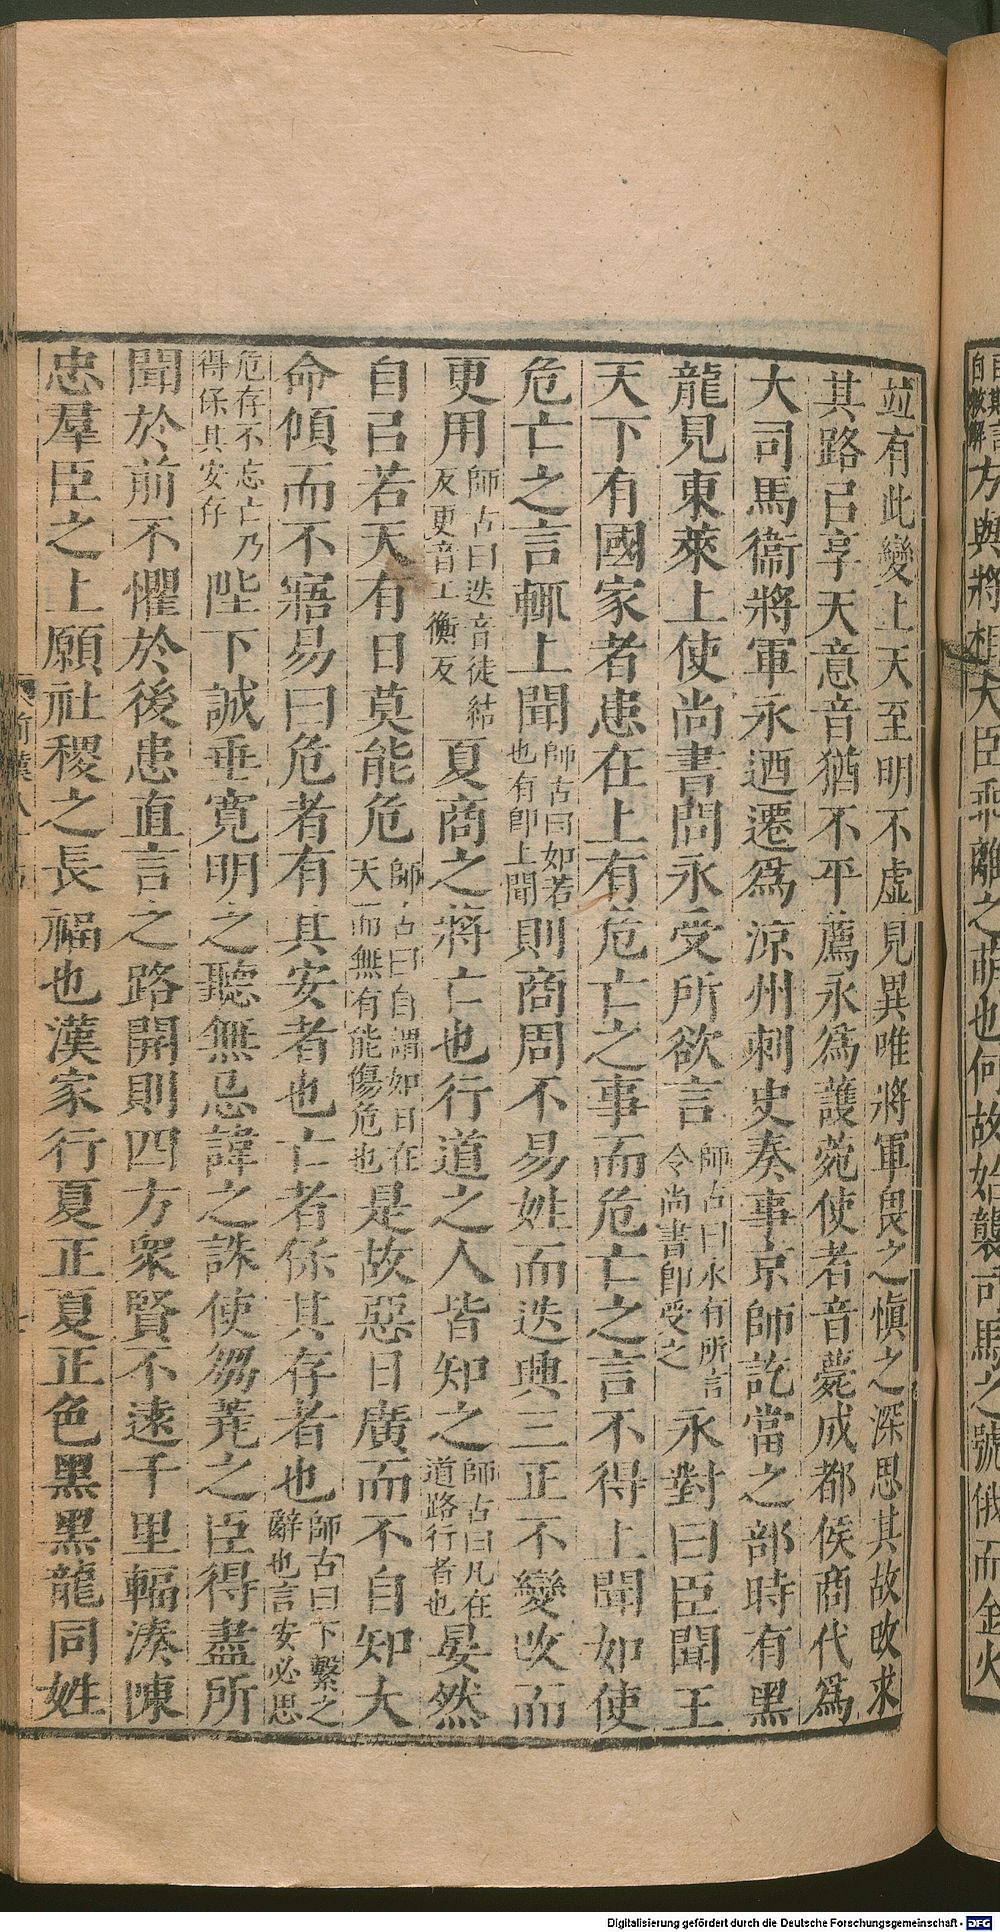 方與將相大臣乖離之萌也何故始襲司馬之號俄而金火
竝有此變上天至明不虛見異唯將軍畏之愼之深思其故改求
其路已享天意音猶不平薦永爲護菀使者音薨成都侯商代爲
大司馬衞將軍永迺遷爲涼州刺史奏事京師訖當之部時有黑
龍見東萊上使尚書問永受所欲言師古曰永有所言令尚書即受之永對曰臣聞王
天下有國家者患在上有危亡之事而危亡之言不得上聞如使
危亡之言輒上聞師古曰如若也有即上聞則商周不易姓而迭興三正不變改而
更用師古曰迭音徒結反更音工衡反夏商之將亡也行道之人皆知之師古曰凡在道路行者也晏然
自㠯若天有日莫能危師古曰自謂如日在天而無有能傷危也是故惡日廣而不自知大
命傾而不寤易曰危者有其安者也亡者保其存者也師古曰下繫之辭也言安必思
危存不忘亡乃得保其安存陛下誠垂寬明之聽無忌諱之誅使芻蕘之臣得盡所
聞於前不懼於後患直言之路開則四方衆賢不遠千里輻湊陳
忠羣臣之上願社稷之長福也漢家行夏正夏正色黑黑龍同姓
Digitalisierung gefördert durch die Deutsche Forschungsgemeinschaft - DFG